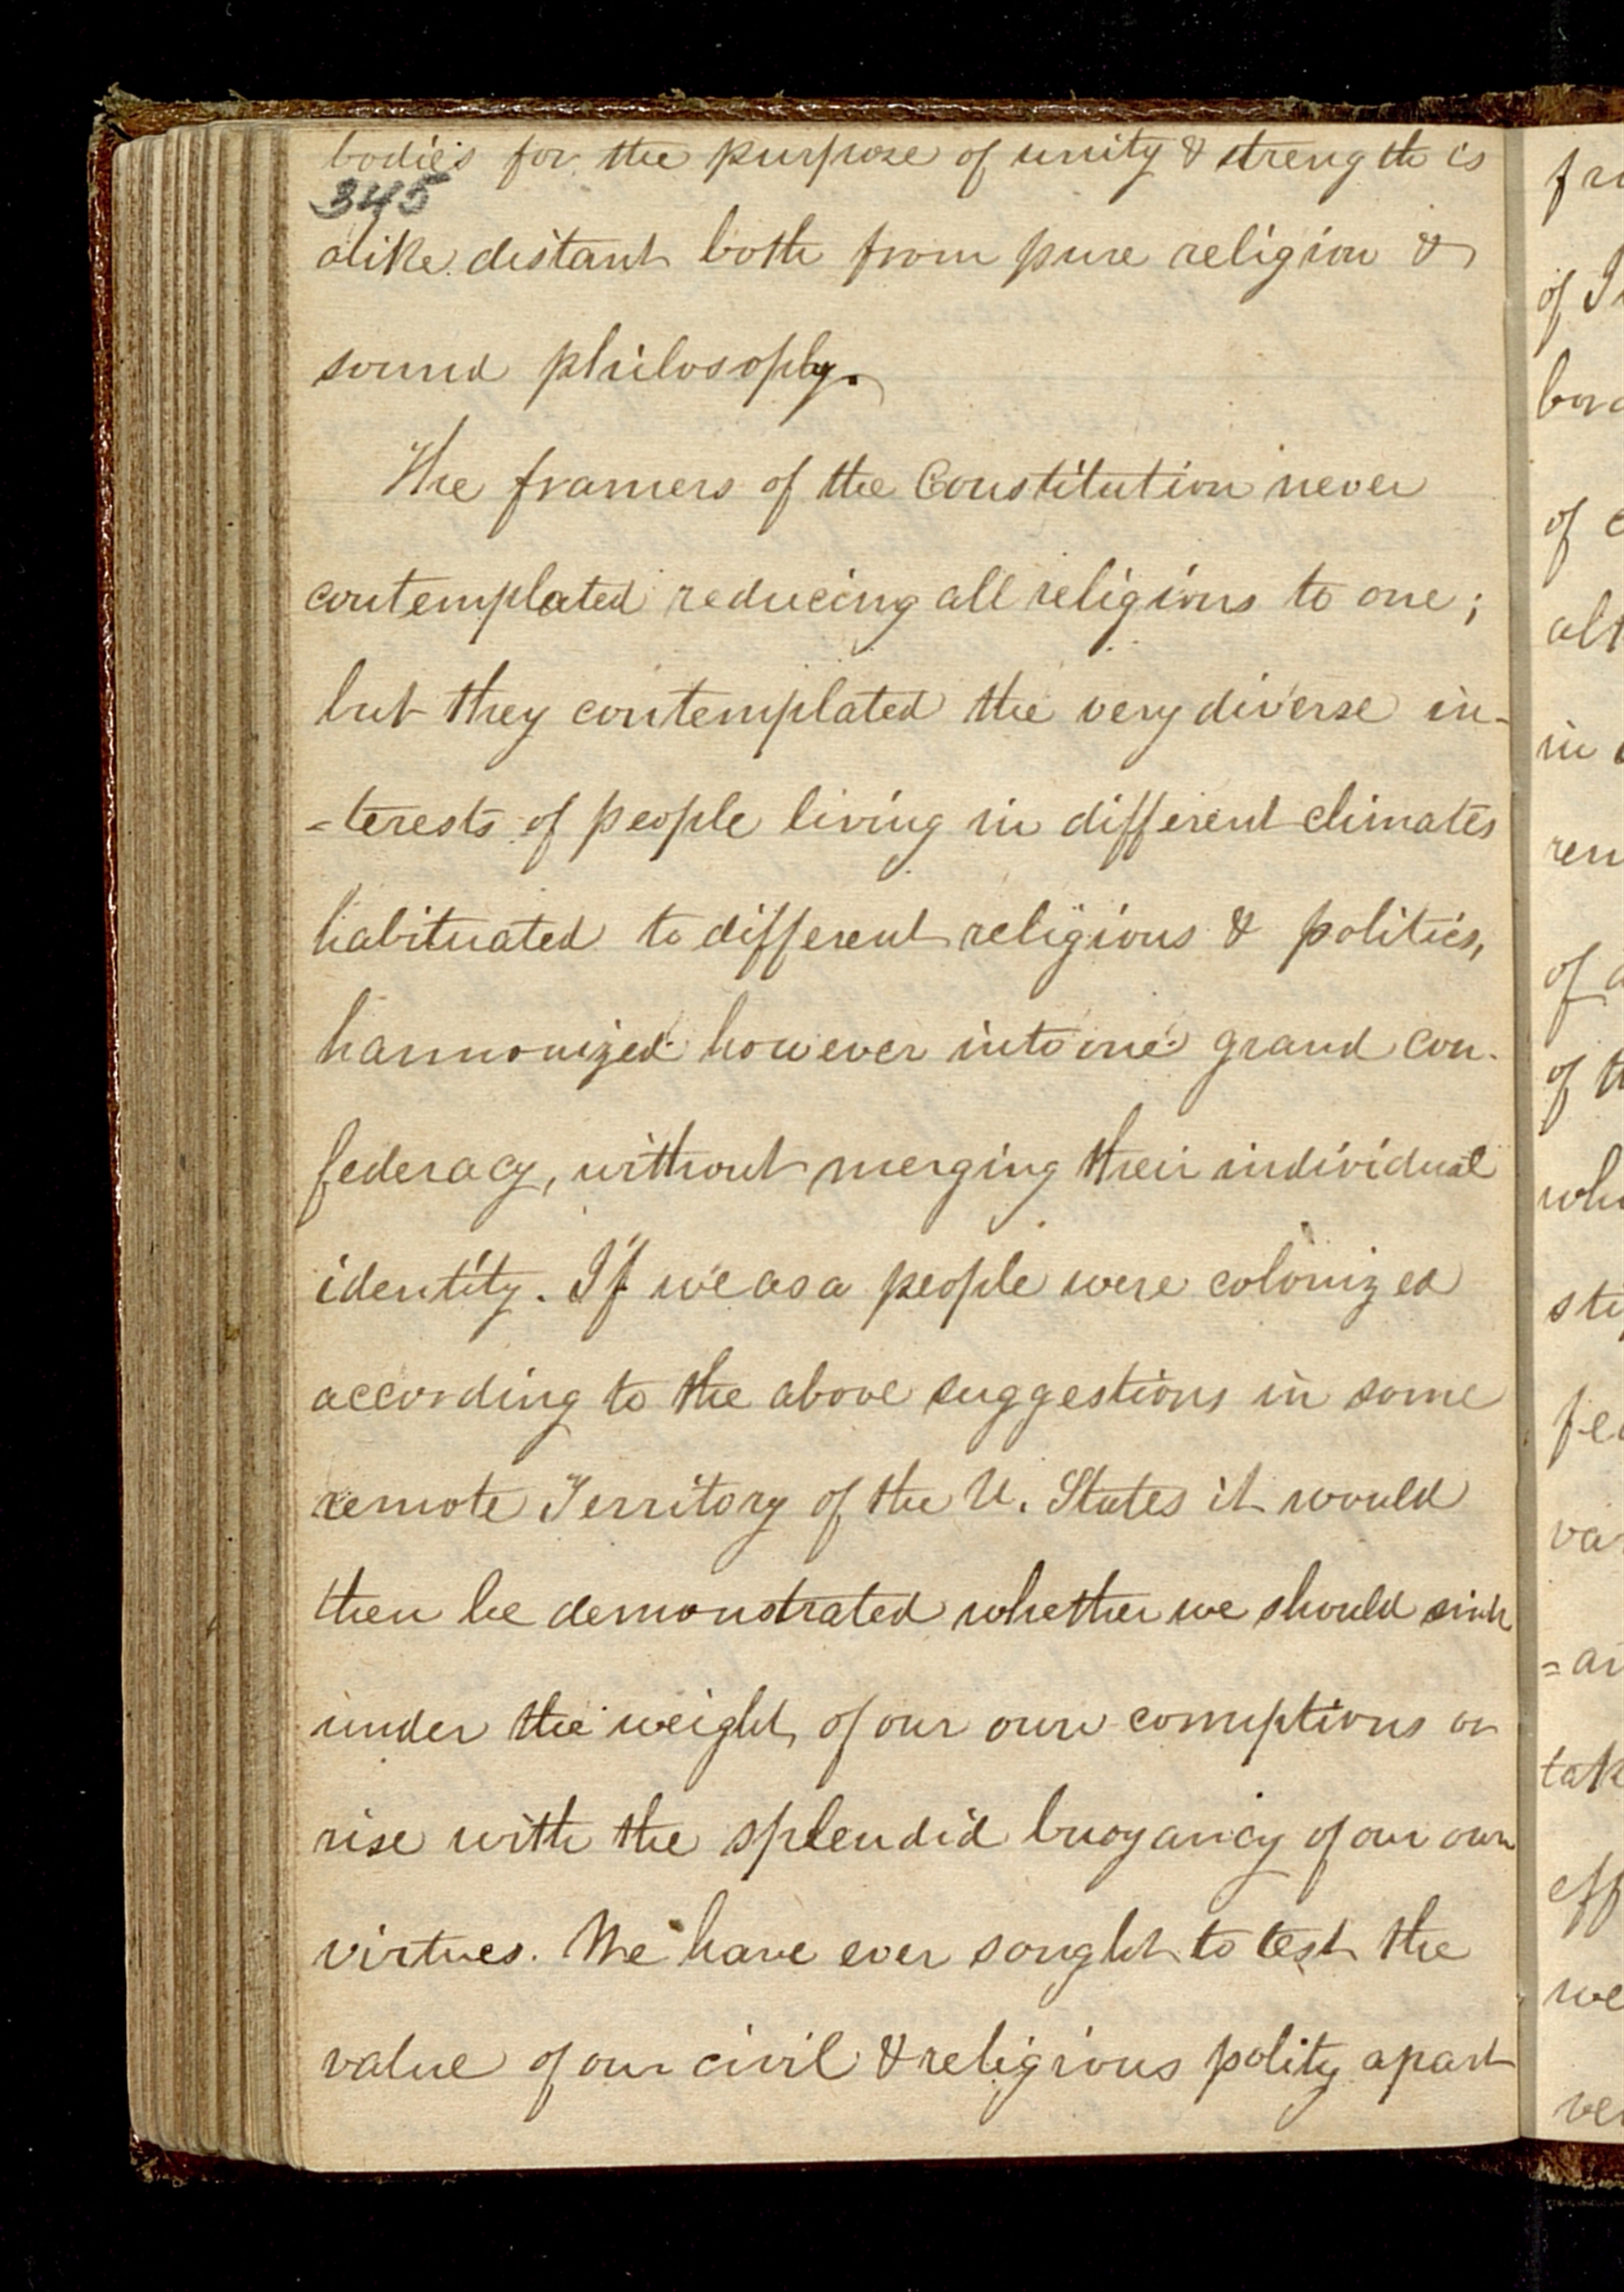 bodies for the purpose of unity & strength is
345
alike distant both from pure religion &
sound philosophy.
The framers of the Constitution never
contemplated reducing all religions to one;
but they contemplated the very diverse in-
=terests of people living in different climates
habituated to different religions & politics,
harmonized however into one grand con-
federacy, without merging their individual
identity. If we as a people were colonized
according to the above suggestions in some
remote Territory of the U. States it would
then be demonstrated whether we should sink
under the weight of our own corruptions or
rise with the splendid buoyancy of our own
virtues. We have ever sought to test the
value of our civil & religious polity apart